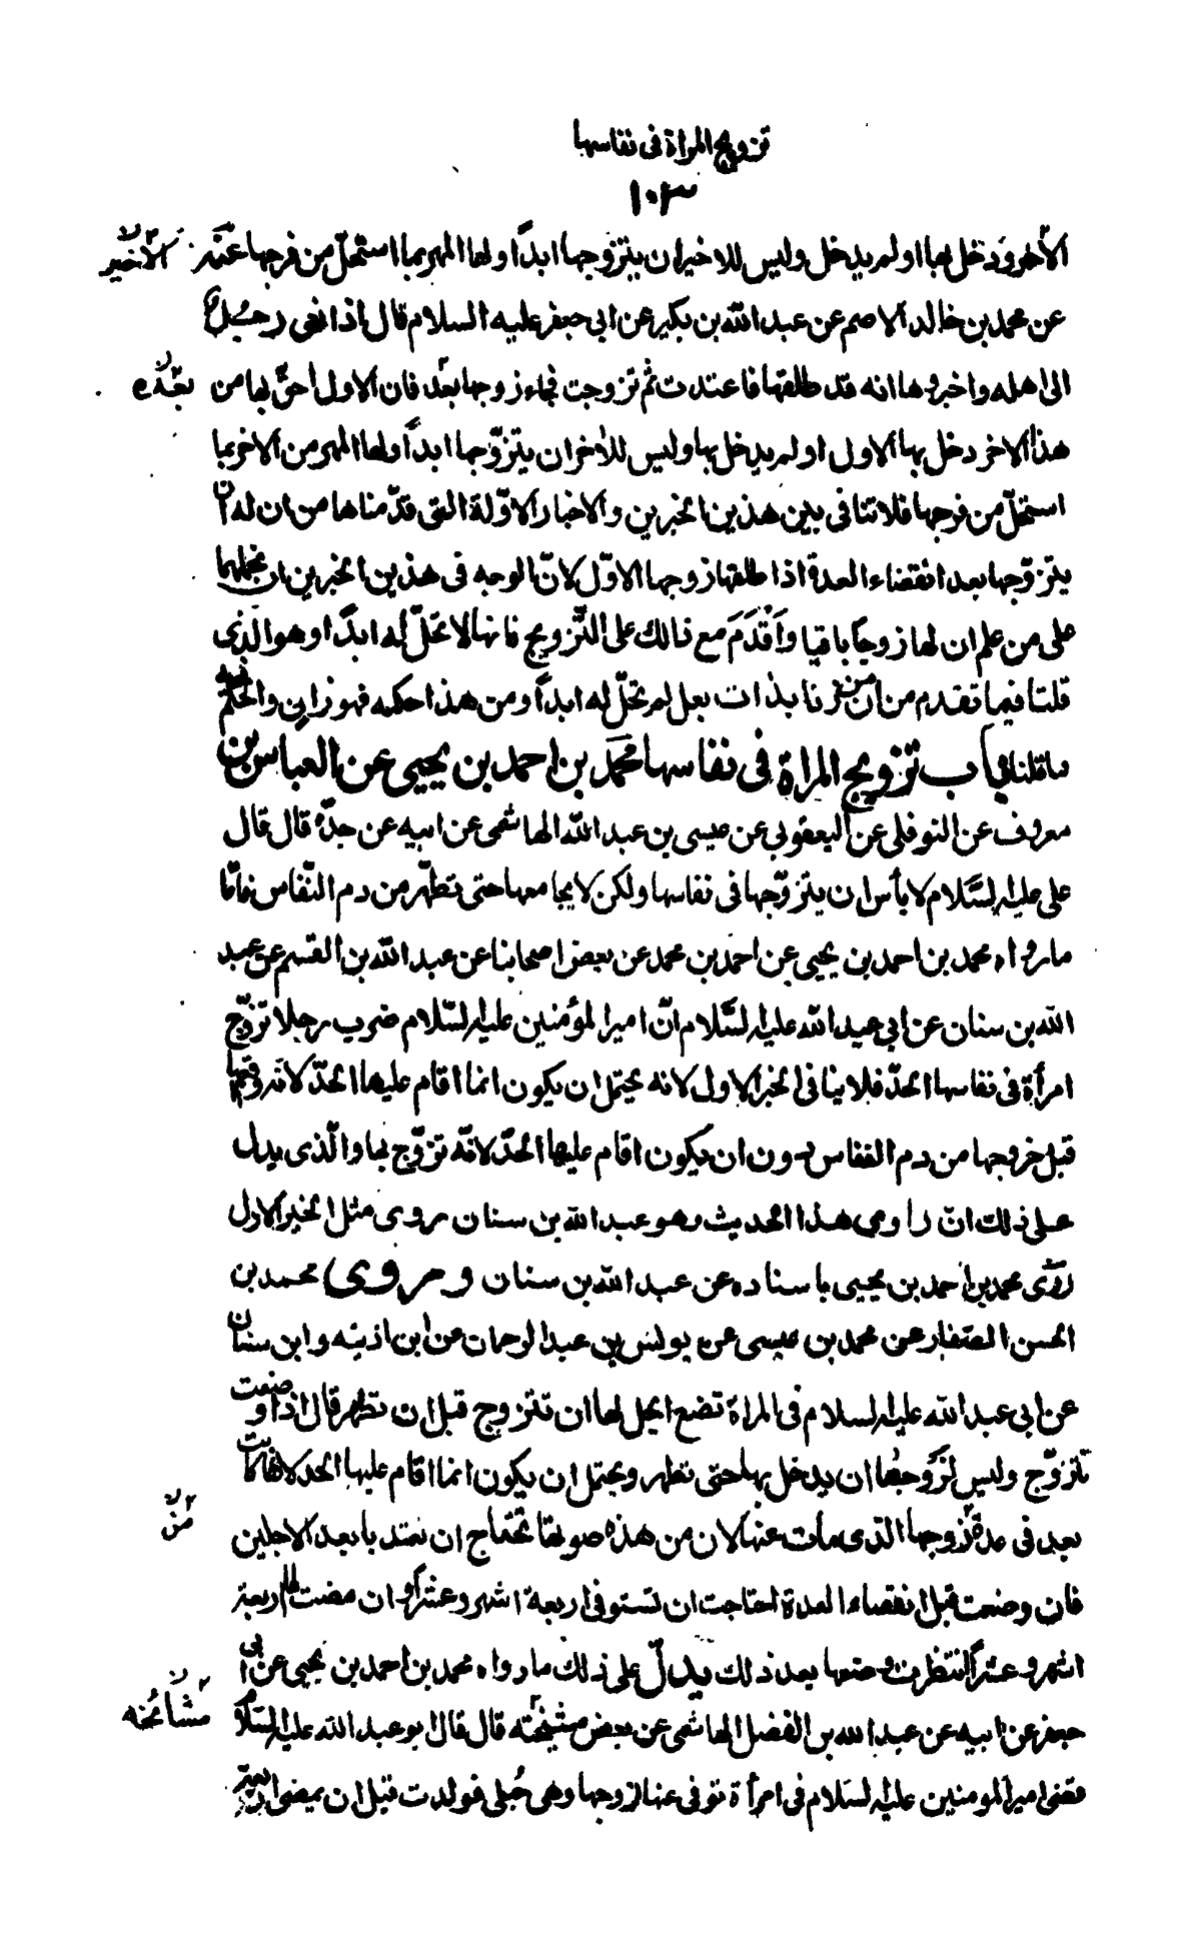 تزويج المراة فى نفاسها
١٠٣
الآخر ودخل بها او لم يدخل وليس للاخير ان يتزوجها ابدًا ولها المهر بما استحلّ من فرجها عنه الاخير
عن محمد بن خالد الاصم عن عبد الله بن بكير عن ابي جعفر عليه السلام قال اذا نعى رجل
الى اهله واخبروها انه قد طلقها فاعتدت ثم تزوجت فجاء زوجها بعد فان الاول احق بها من بعده
هذا الاخر دخل بها الاول او لم يدخل بها وليس للآخر ان يتزوّجها ابدًا ولها المهر من الاخر بما
استحلّ من فرجها فلا تنافى بين هذين الخبرين والاخبار الاوّلة التى قدّمناها من ان له ان
يتزوّجها بعد انقضاء العدة اذا طلقها زوجها الاوّل لانّ الوجه فى هذين الخبرين ان نحملهما
على من علم ان لها زوجًا باقيا وَاَقْدَمَ مع ذالك على التّزويج فانها لا تحلّ له ابدًا وهو الذى
قلنا فيما تقدم من ان من زنا بذات بعل لم تحلّ له ابدًا ومن هذا حكمه فهو زانٍ والحكم فيه
ما قلناه باب تزويج المراة فى نفاسها محمد بن احمد بن يحيى عن العباس بن
معروف عن النوفلى عن اليعقوبي عن عيسى بن عبد الله الهاشمى عن ابيه عن جدّه قال قال
على عليه السَّلام لا بأس ان يتزوّجها فى نفاسها ولكن لا يجامعها حتى تطهّر من دم النّفاس فامّا
ما رواه محمد بن احمد بن يحيى عن احمد بن محمد عن بعض اصحابنا عن عبد الله بن القسم عن عبد
الله بن سنان عن ابي عبد الله عليه السَّلام انّ امير المؤمنين عليه السّلام ضرب رجلا تزوّج
امرأة فى نفاسها الحدّ فلا ينافى الخبر الاول لانه يحتمل ان يكون انما اقام عليها الحدّ لانه واقعها
قبل خروجها من دم النفاس دون ان يكون اقام عليها الحدّ لانّه تزوّج بها والّذى يدل
على ذلك انّ راوى هذا الحديث وهو عبد الله بن سنان روى مثل الخبر الاول
روى محمد بن احمد بن يحيى باسناده عن عبد الله بن سنان وروى محمد بن
الحسن الصفار عن محمد بن عيسى عن يونس بن عبد الرحمان عن ابن اذينه وابن سنان
عن ابى عبد الله عليه السلام فى المراة تضع ايحل لها ان تتزوج قبل ان تطهر قال اذا وضعت
تتزوّج وليس لزوجها ان يدخل بها حتى تطهر ويحتمل ان يكون انما اقام عليها الحد لانها كانت
بعد فى عدة زوجها الذى مات عنها لان من هذه صورتها تحتاج ان تعتد بابعد الاجلين من
فان وضعت قبل انقضاء العدة احتاجت ان تستوفى اربعة اشهر وعشرًا وان مضت لها اربعة
اشهر وعشرًا انتظرت وضعها بعد ذلك يدلّ على ذلك ما رواه محمد بن احمد بن يحيى عن ابى
جعفر عن ابيه عن عبد الله بن الفضل الهاشمى عن بعض مشيخته قال قال ابو عبد الله عليه السّلام مشائخه
قضى امير المومنين عليه السّلام فى امرأة توفى عنها زوجها وهى حُبلى فولدت قبل ان يمضى اربعة